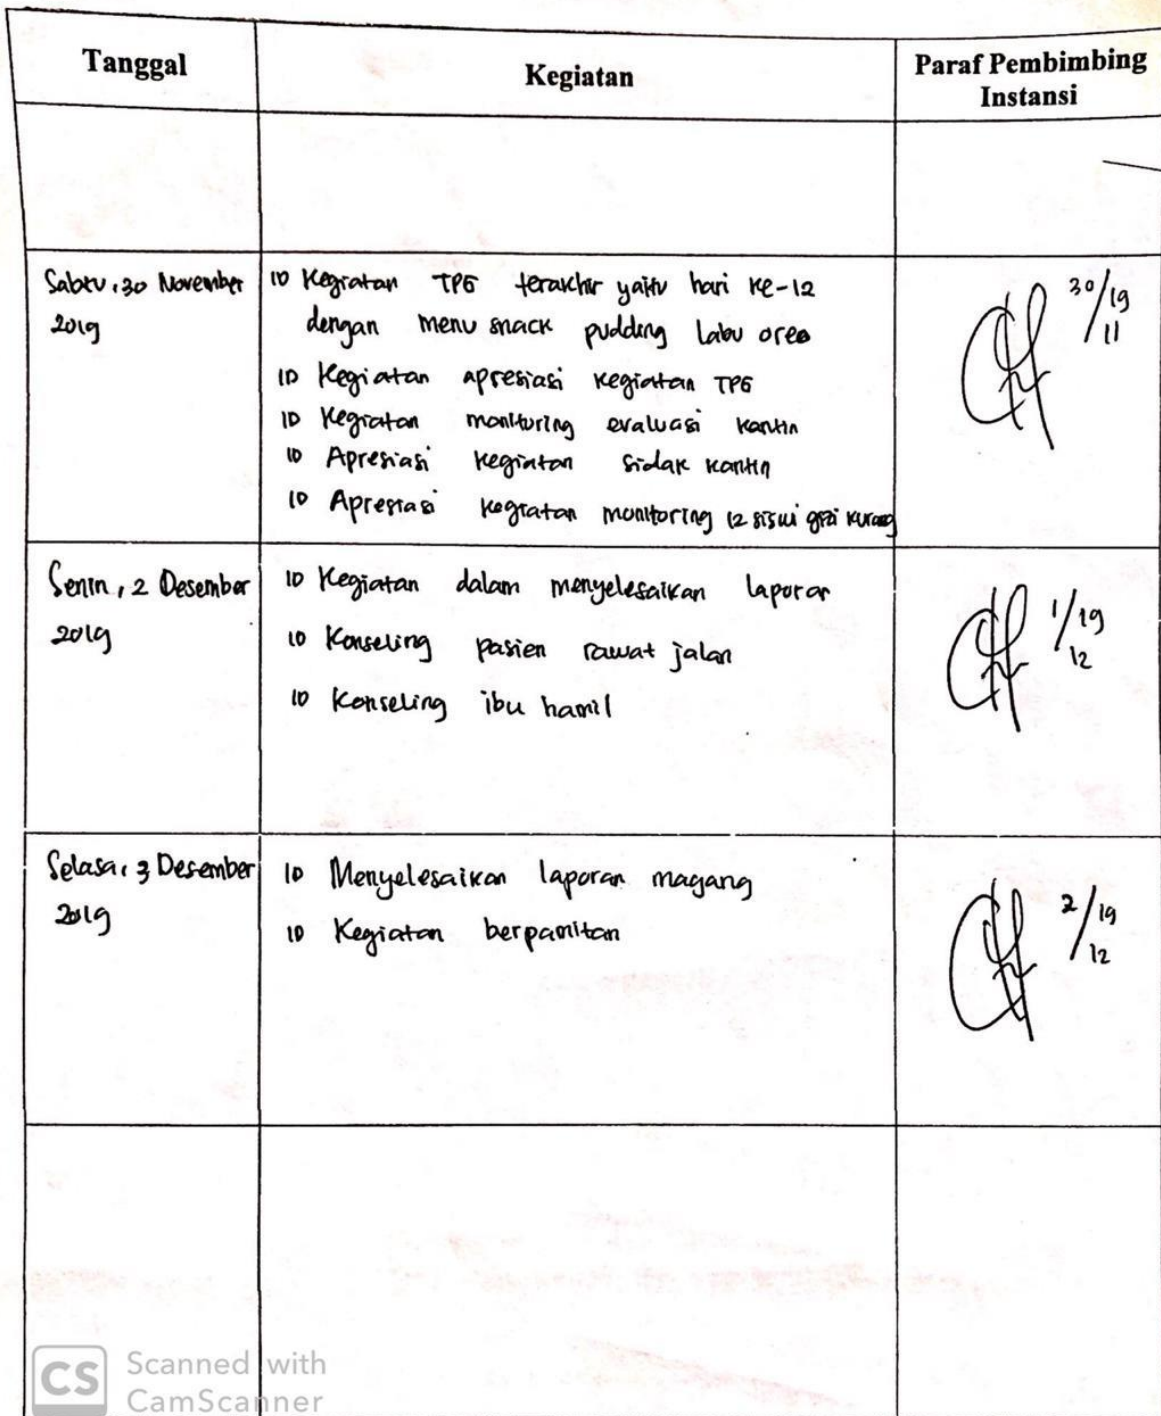 Tanggal
Kegiatan
Paraf Pembimbing
Instansi
Sabtu, 30 November
2019
Kegiatan TPG terakhir yaitu hari ke-12
dengan menu snack pudding labu oreo
Kegiatan apresiasi kegiatan TPG
Kegiatan monitoring evaluasi kantin
Apresiasi kegiatan sidak kantin
Apresiasi kegiatan monitoring 12 siswi gizi kurang
30/19
11
Senin, 2 Desember
2019
Kegiatan dalam menyelesaikan laporan
Konseling pasien rawat jalan
Konseling ibu hamil
1/19
12
Selasa, 3 Desember
2019
Menyelesaikan laporan magang
Kegiatan berpamitan
2/19
12
CS
Scanned with
CamScanner